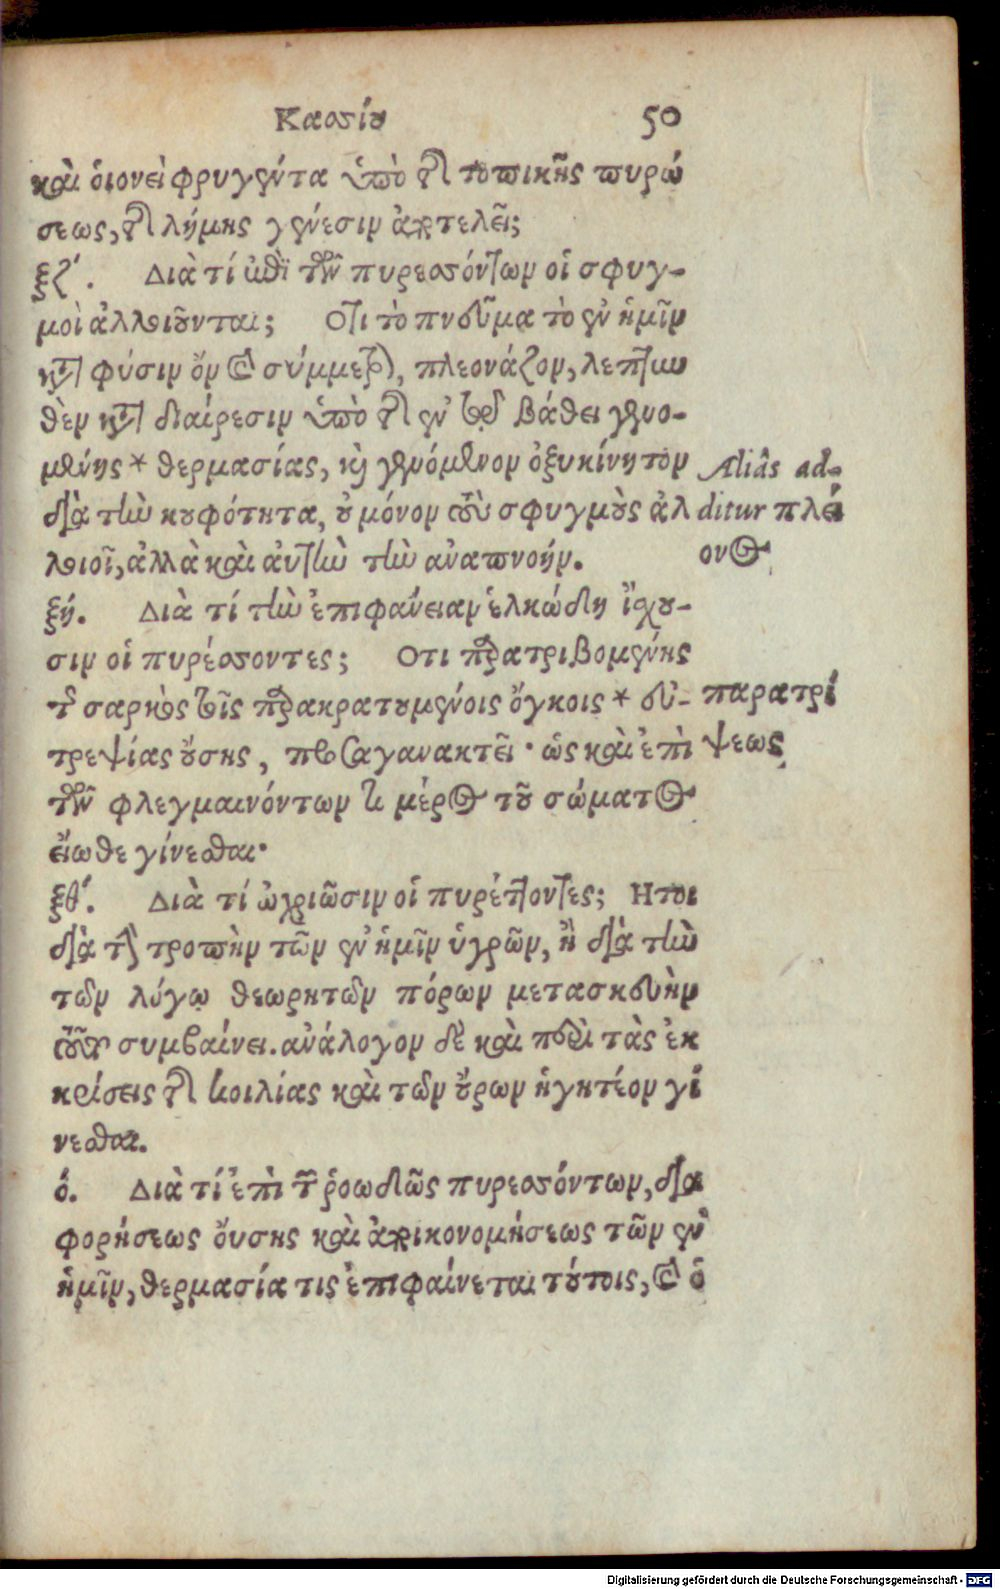 Κασσίου 50
καὶ οἱονεὶ φρυγέντα ὑπὸ τῆς τοπικῆς πυρώ
σεως, τῆς λήμης γένεσιν ἀποτελεῖ;
ξζ΄. Διὰ τί ἐπὶ τῶν πυρεσσόντων οἱ σφυγ-
μοὶ ἀλλοιοῦνται; Οτι τὸ πνεῦμα τὸ ἐν ἡμῖν
κατὰ φύσιν ὂν καὶ σύμμετρον, πλεονάζον, λεπτυν
θὲν κατὰ διαίρεσιν ὑπὸ τῆς ἐν τῷ βάθει γενο-
μένης * θερμασίας, καὶ γενόμενον ὀξυκίνητον
διὰ τὴν κουφότητα, οὐ μόνον τοὺς σφυγμοὺς ἀλ
λοιοῖ, ἀλλὰ καὶ αὐτὴν τὴν ἀναπνοήν.
Aliâs ad-
ditur πλεί
ονος
ξή. Διὰ τί τὴν ἐπιφάνειαν ἑλκώδη ἴσχου-
σιν οἱ πυρέσσοντες; Οτι παρατριβομένης
τῆς σαρκὸς τοῖς παρακρατουμένοις ὄγκοις * δυ-
τρεψίας οὔσης, προσαγανακτεῖ· ὡς καὶ ἐπὶ
τῶν φλεγμαινόντων τι μέρος τοῦ σώματος
εἴωθε γίνεσθαι·
παρατρί
ψεως
ξθ΄. Διὰ τί ὠχριῶσιν οἱ πυρέττοντες; Ητοι
διὰ τὴν τροπὴν τῶν ἐν ἡμῖν ὑγρῶν, ἢ διὰ τὴν
τῶν λόγῳ θεωρητῶν πόρων μετασκευὴν
τοῦτο συμβαίνει. ἀνάλογον δὲ καὶ περὶ τὰς ἐκ
κρίσεις τῆς κοιλίας καὶ τῶν οὔρων ἡγητέον γί
νεσθαι.
ό. Διὰ τί ἐπὶ τῶν ῥοωδῶς πυρεσσόντων, δια
φορήσεως οὔσης καὶ ἀποικονομήσεως τῶν ἐν
ἡμῖν, θερμασία τις ἐπιφαίνεται τούτοις, καὶ ὁ
Digitalisierung gefördert durch die Deutsche Forschungsgemeinschaft - DFG